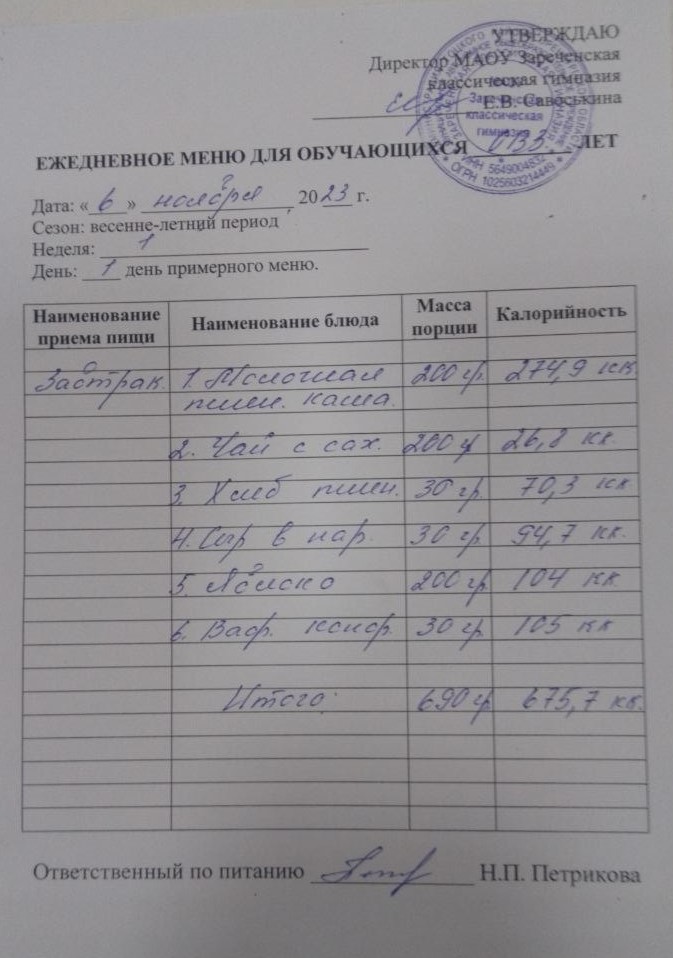 УТВЕРЖДАЮ
Директор МАОУ Зареченская
классическая гимназия
Е.В. Савоськина
классическая
гимназия
ИНН 5649004832
ОГРН 1025603214449
ЕЖЕДНЕВНОЕ МЕНЮ ДЛЯ ОБУЧАЮЩИХСЯ ЛЕТ
Дата: «6» ноября 2023 г.
Сезон: весенне-летний период
Неделя: 1
День: 1 день примерного меню.
Наименование приема пищи Наименование блюда Масса порции Калорийность
Завтрак. 1. Молочная 200 гр. 274,9 кк.
пшен. каша.
2. Чай с сах. 200 гр 26,8 кк.
3. Хлеб пшен. 30 гр. 70,3 кк
4. Сыр в нар. 30 гр. 94,7 кк.
5. Яблоко 200 гр. 104 кк.
6. Ваф. конф. 30 гр. 105 кк
Итого: 690 гр 675,7 кк.
Ответственный по питанию Н.П. Петрикова